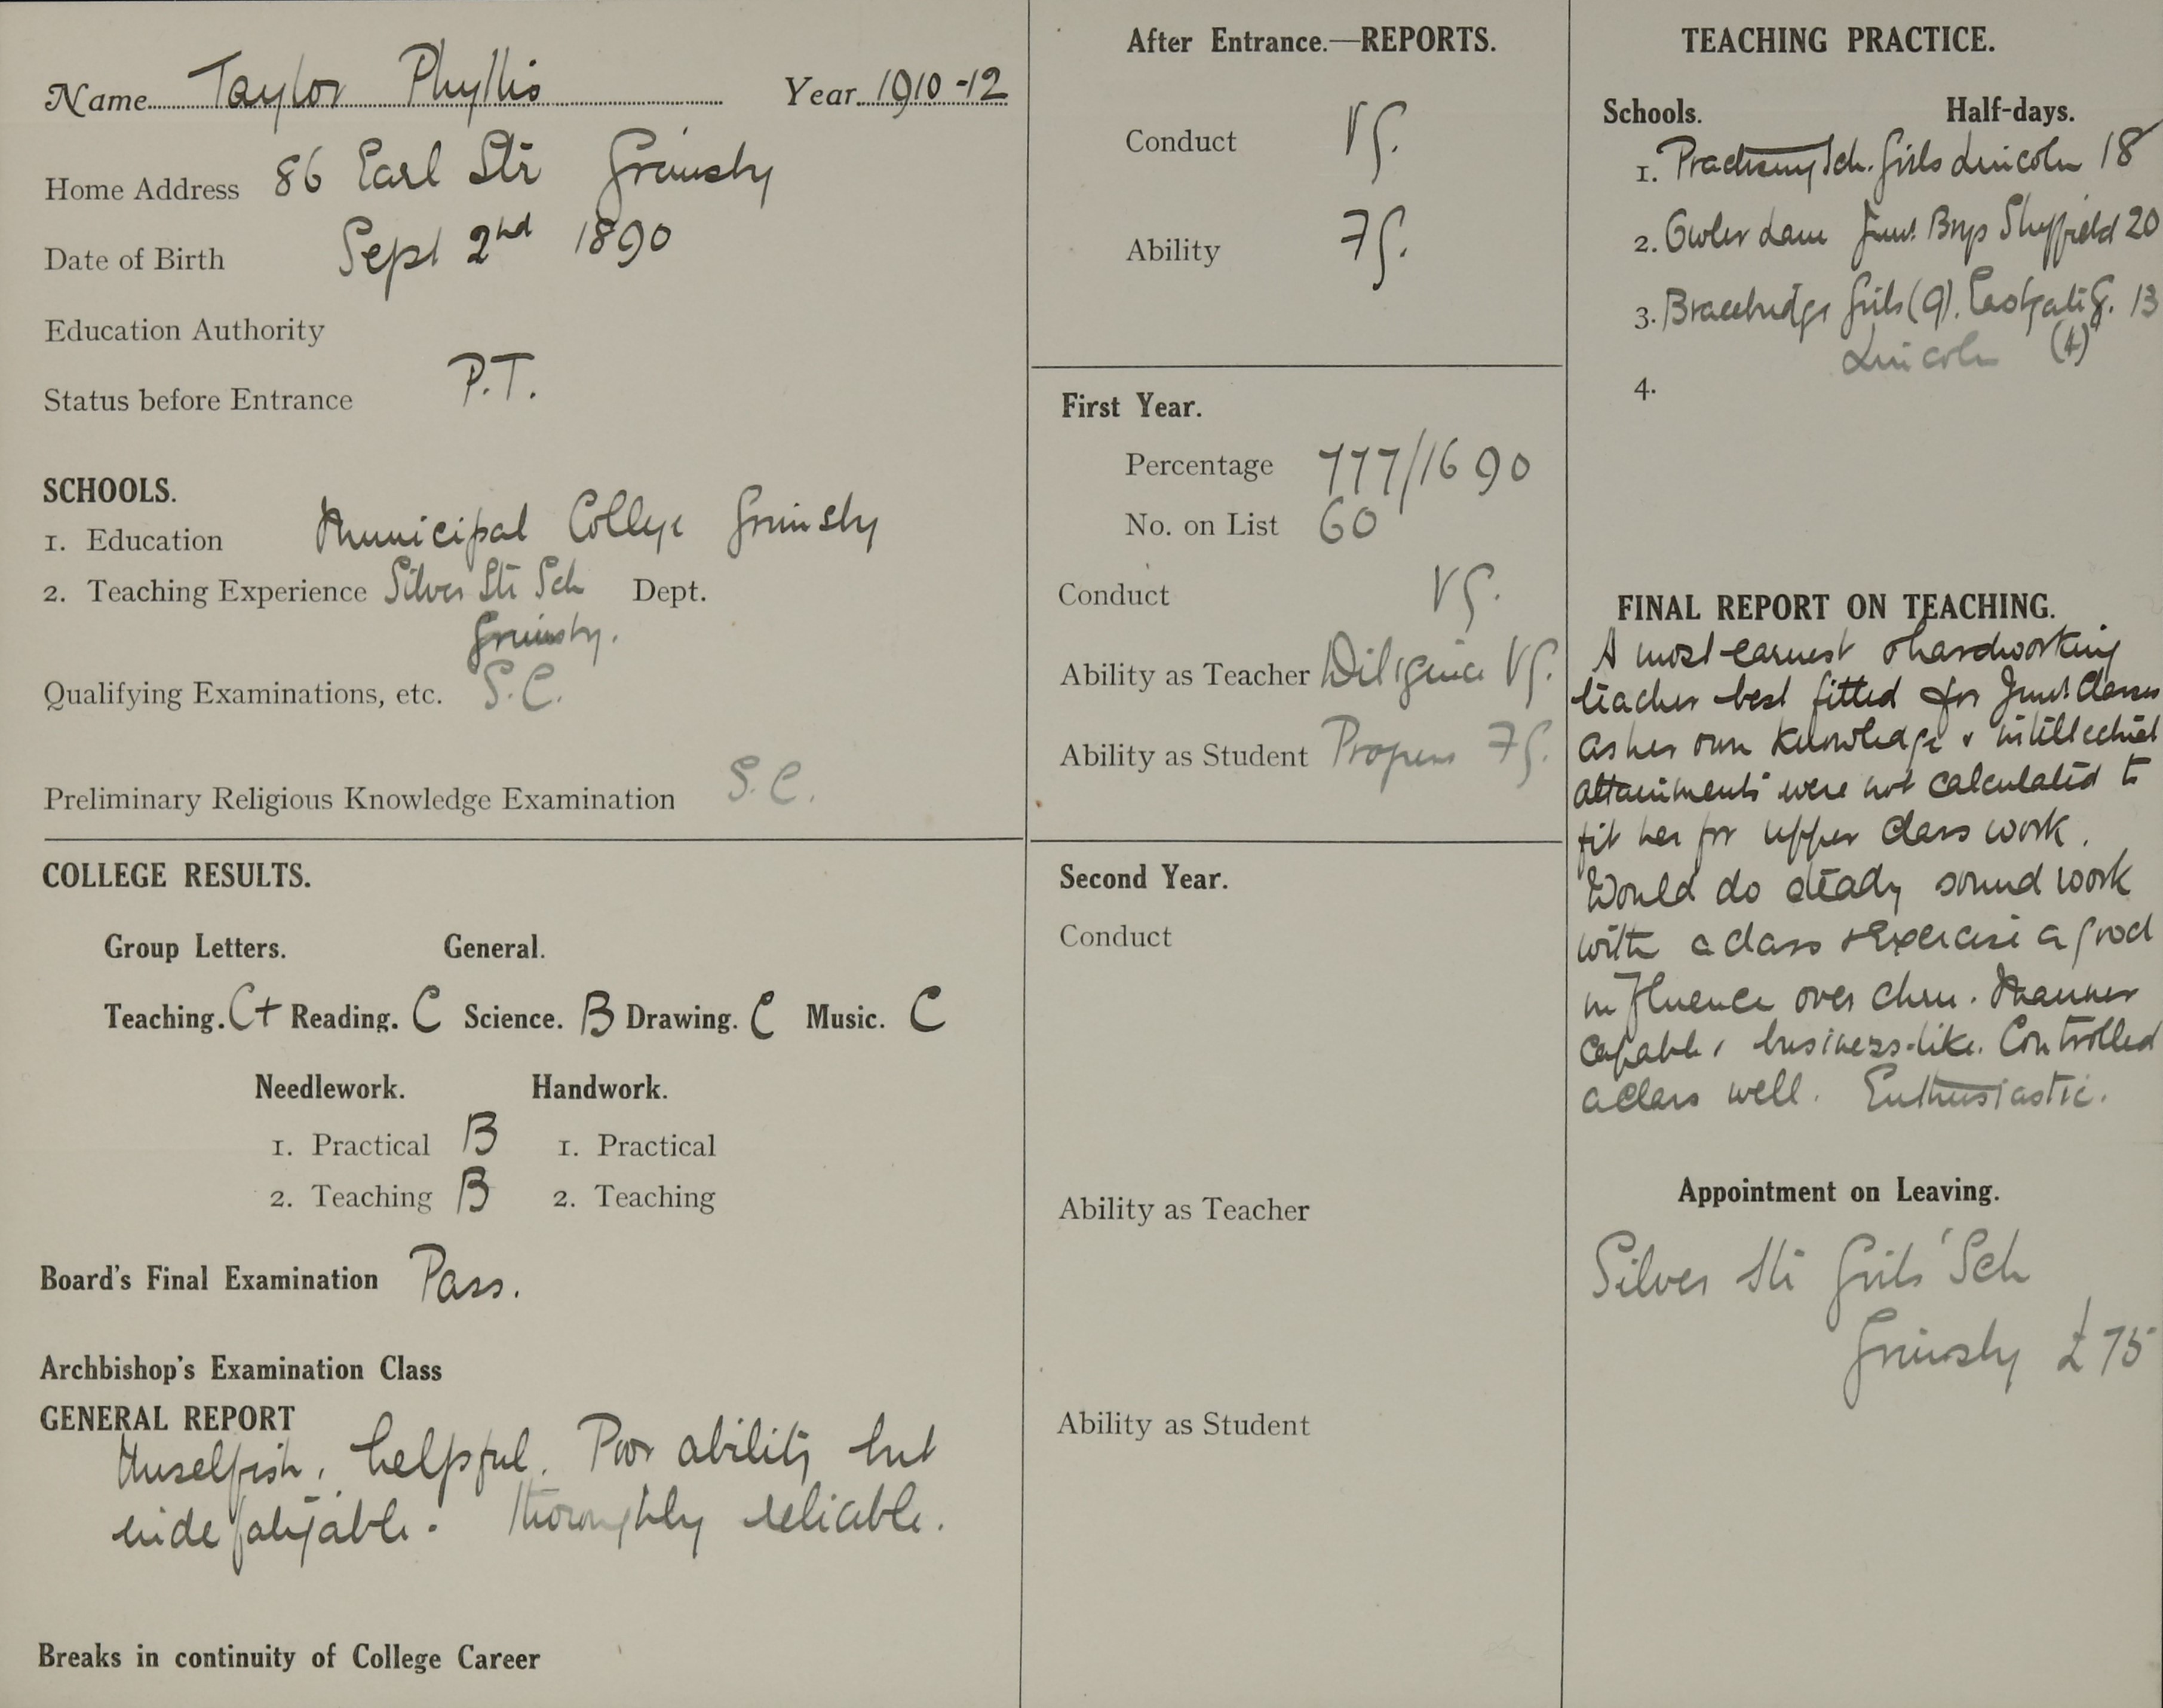 Name Taylor Phyllis Year 1910-12
Home Address 86 Earl Str Grimsby
Date of Birth Sept 2nd 1890
Education Authority
Status before Entrance P.T.
SCHOOLS.
1. Education Municipal College Grimsby
2. Teaching Experience Silver Str Sch Dept.
Grimsby.
Qualifying Examinations, etc. S.C.
Preliminary Religious Knowledge Examination S.C.
COLLEGE RESULTS.
Group Letters. General.
Teaching. C+ Reading. C Science. B Drawing. C Music. C
Needlework. Handwork.
1. Practical B 1. Practical
2. Teaching B 2. Teaching
Board's Final Examination Pass.
Archbishop's Examination Class
GENERAL REPORT
Unselfish, helpful. Poor ability but
indefatigable. Thoroughly reliable.
Breaks in continuity of College Career
After Entrance.—REPORTS.
Conduct VG.
Ability FG.
First Year.
Percentage 777/1690
No. on List 60
Conduct VG.
Ability as Teacher Diligence VG.
Ability as Student Progress FG.
Second Year.
Conduct
Ability as Teacher
Ability as Student
TEACHING PRACTICE.
Schools. Half-days.
1. Practising Sch. Girls Lincoln 18
2. Owler Lane Junr. Boys Sheffield 20
3. Bracebridge Girls (9). Eastgate G. 13
Lincoln (4)
4.
FINAL REPORT ON TEACHING.
A most earnest & hardworking
teacher best fitted for Junr. Classes
as her own knowledge & intellectual
attainments were not calculated to
fit her for upper class work.
Would do steady sound work
with a class & exercise a good
influence over chn. Manner
capable, business-like. Controlled
a class well. Enthusiastic.
Appointment on Leaving.
Silver Str Girls' Sch
Grimsby £75